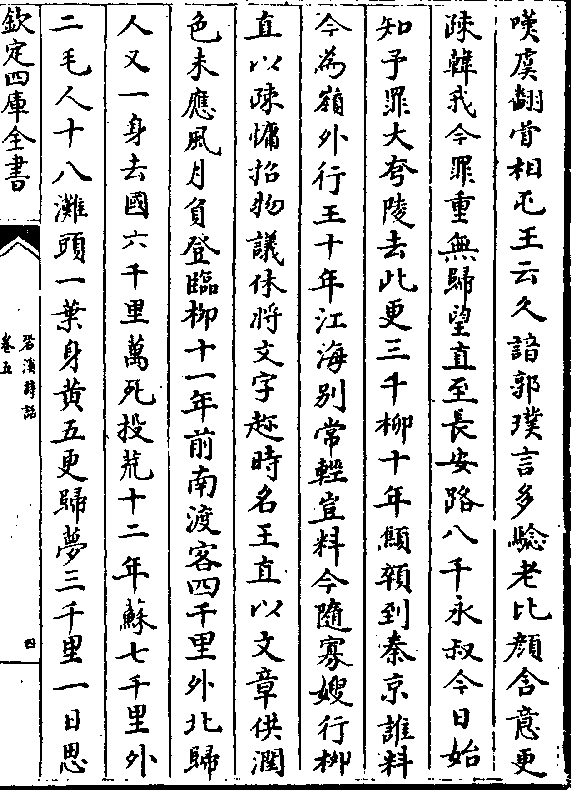 嘆虞翻骨相屯王云久諳郭璞言多驗老比顔含意更
疎韓我今罪重無歸望直至長安路八千永叔今日始
知予罪大夸陵去此更三千柳十年顦顇到秦京誰料
今為嶺外行王十年江海别常輕豈料今隨寡嫂行柳
直以疎慵招物議休將文字趂時名王直以文章供潤
色未應風月負登臨柳十一年前南渡客四千里外北歸
人又一身去國六千里萬死投荒十二年蘇七千里外
二毛人十八灘頭一葉身黄五更歸夢三千里一日思
欽定四庫全書
䂬溪詩話
卷五
四